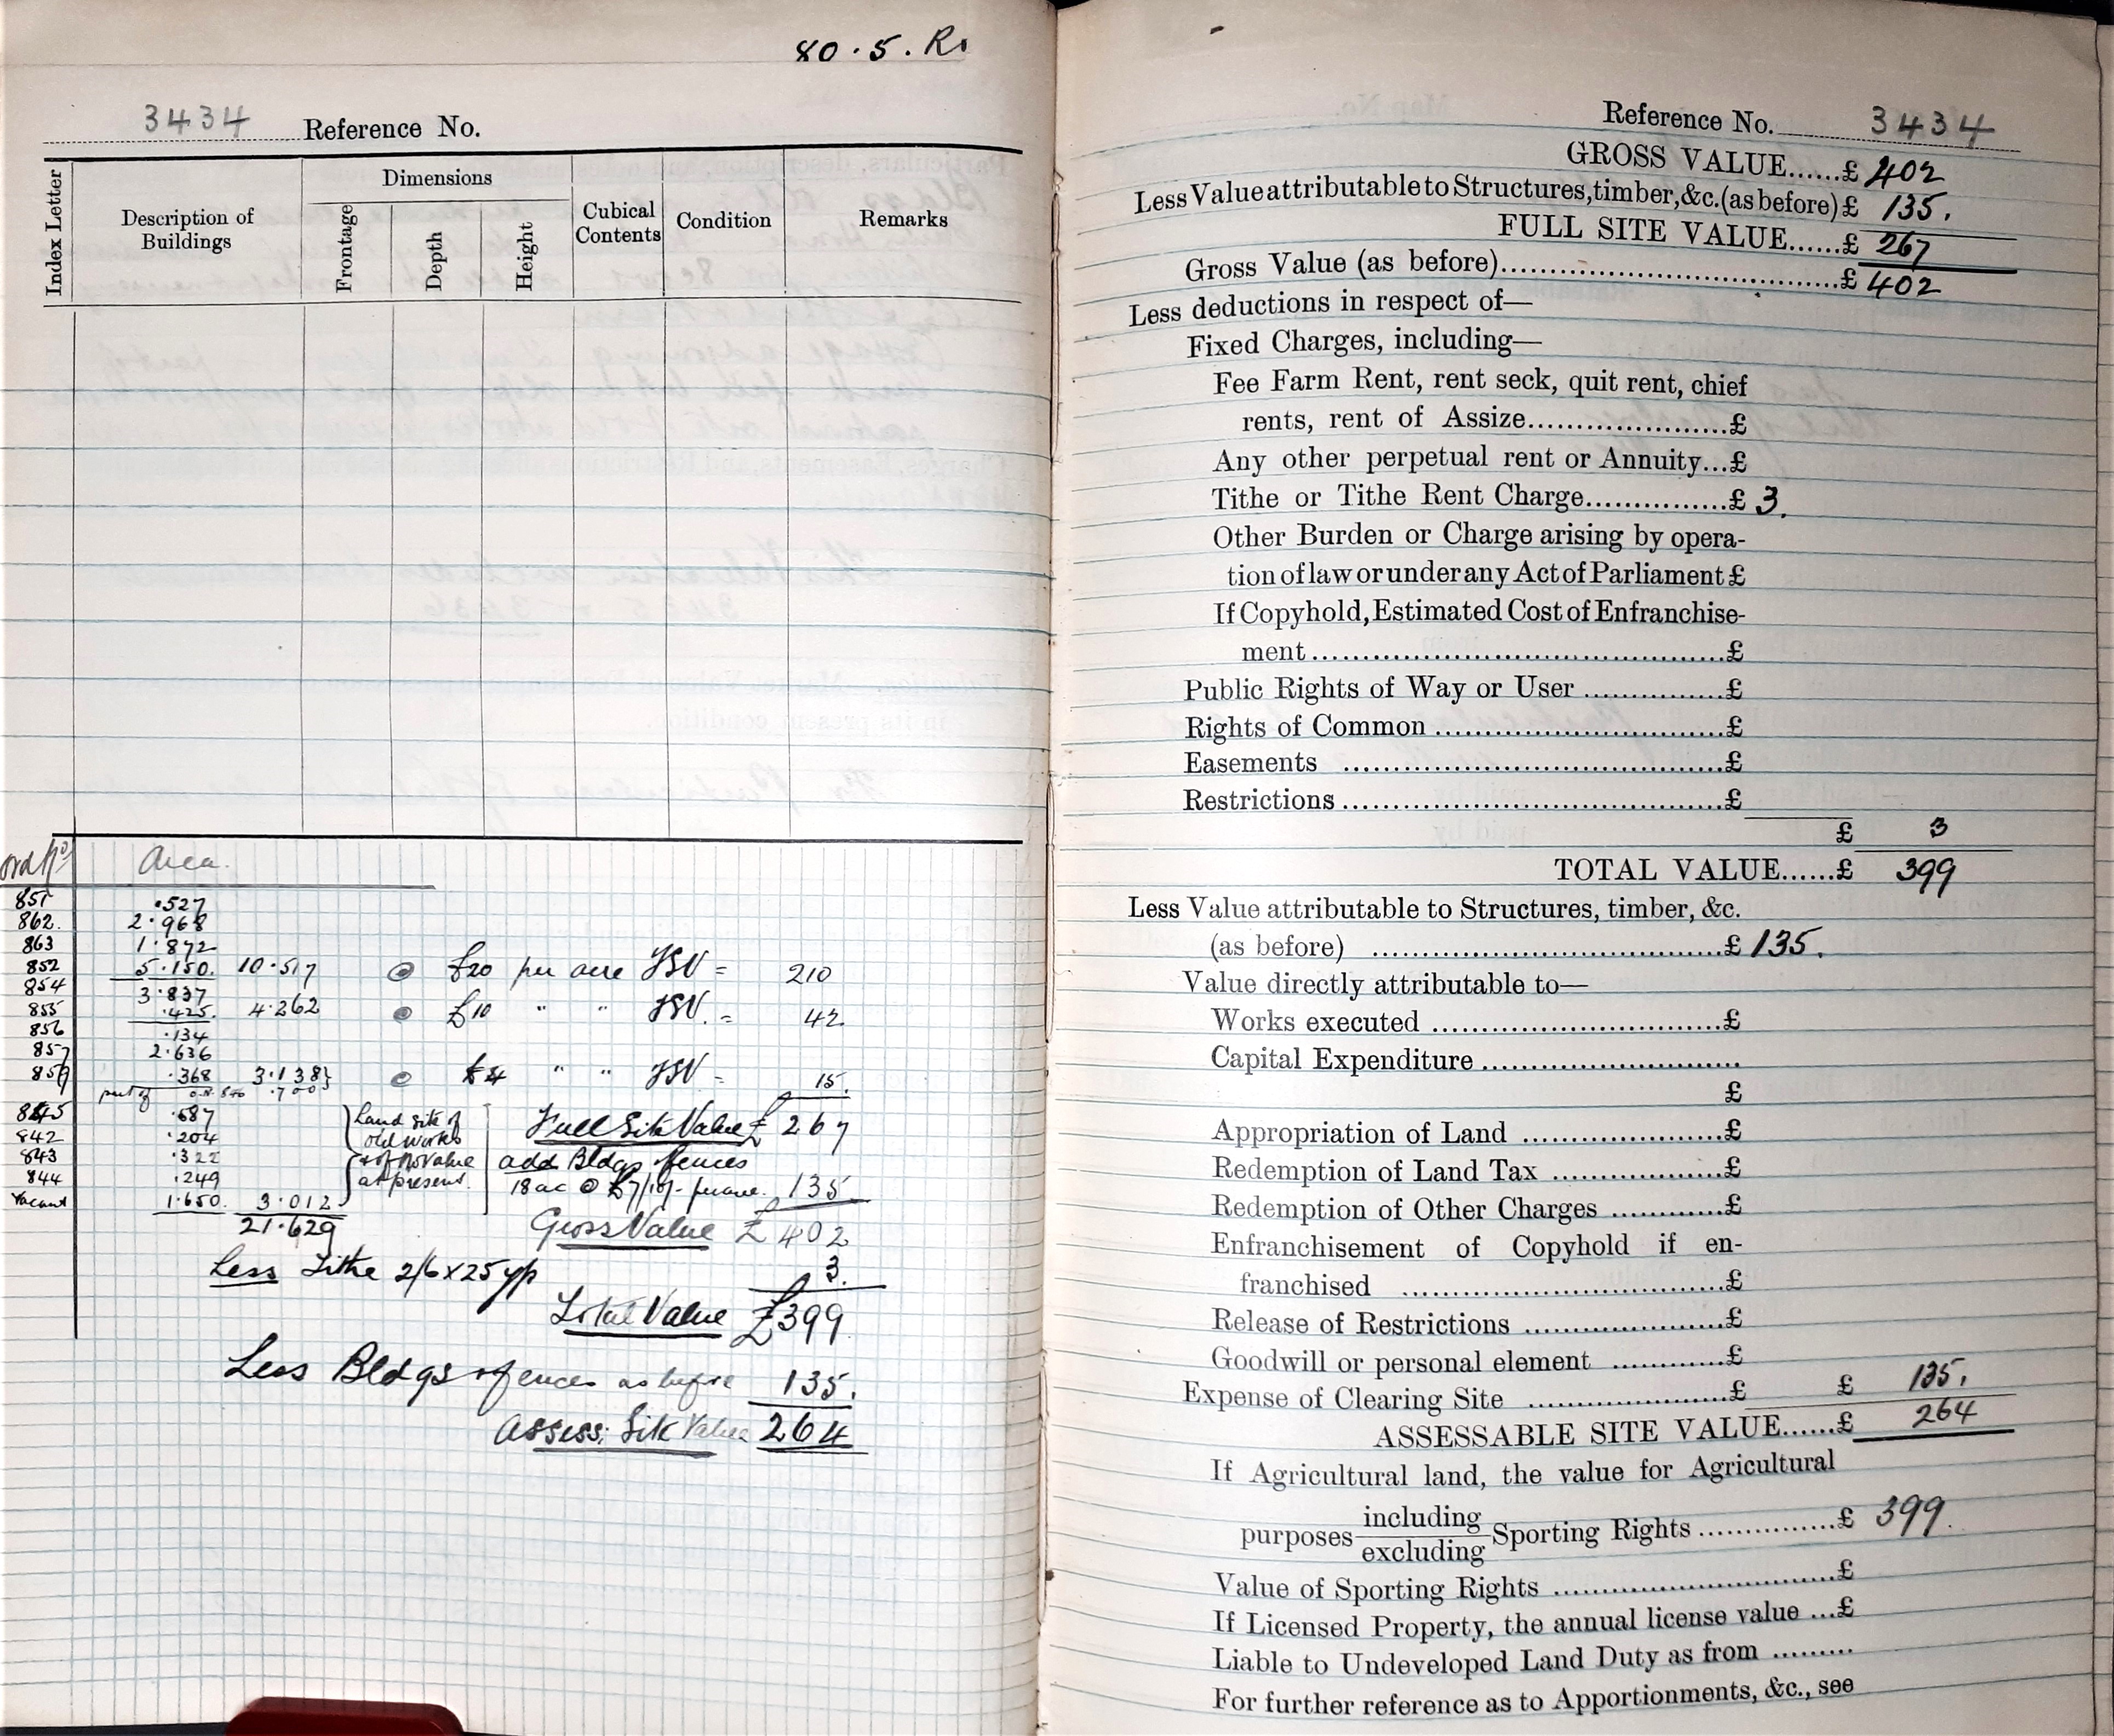 80.5.R.
3434 Reference No.
Index Letter
Description of Buildings
Dimensions
Frontage
Depth
Height
Cubical Contents
Condition
Remarks
Area.
851 .527
862. 2.968
863 1.872
852 5.150. 10.517 @ £20 per acre FSV = 210
854 3.837
855 .425. 4.262 @ £10 " " FSV. = 42
856 .134
857 2.636
859 .368 3.138} @ £4 " " FSV = 15.
part of .700}
845 .687
842 .204
843 .322
844 .249
Vacant 1.650. 3.012
Land Site of
old works
& of no value
at present.
21.629
Full Site Value £ 267
add Bldgs & fences
18 ac @ £7/10/- per acre. 135
Gross Value £ 402
Less Tithe 2/6 x 25 yp 3.
Total Value £399
Less Bldgs & fences as before 135.
Assess: Site Value 264
Reference No. 3434
GROSS VALUE......£ 402
Less Value attributable to Structures, timber, &c. (as before) £ 135.
FULL SITE VALUE......£ 267
Gross Value (as before)..........£ 402
Less deductions in respect of—
Fixed Charges, including—
Fee Farm Rent, rent seck, quit rent, chief
rents, rent of Assize..........£
Any other perpetual rent or Annuity...£
Tithe or Tithe Rent Charge..........£ 3.
Other Burden or Charge arising by opera-
tion of law or under any Act of Parliament £
If Copyhold, Estimated Cost of Enfranchise-
ment..........£
Public Rights of Way or User..........£
Rights of Common..........£
Easements..........£
Restrictions..........£
£ 3
TOTAL VALUE......£ 399
Less Value attributable to Structures, timber, &c.
(as before)..........£ 135.
Value directly attributable to—
Works executed..........£
Capital Expenditure..........
£
Appropriation of Land..........£
Redemption of Land Tax..........£
Redemption of Other Charges..........£
Enfranchisement of Copyhold if en-
franchised..........£
Release of Restrictions..........£
Goodwill or personal element..........£
Expense of Clearing Site..........£ £ 135.
ASSESSABLE SITE VALUE......£ 264
If Agricultural land, the value for Agricultural
purposes including/excluding Sporting Rights..........£ 399.
Value of Sporting Rights..........£
If Licensed Property, the annual license value...£
Liable to Undeveloped Land Duty as from.........
For further reference as to Apportionments, &c., see